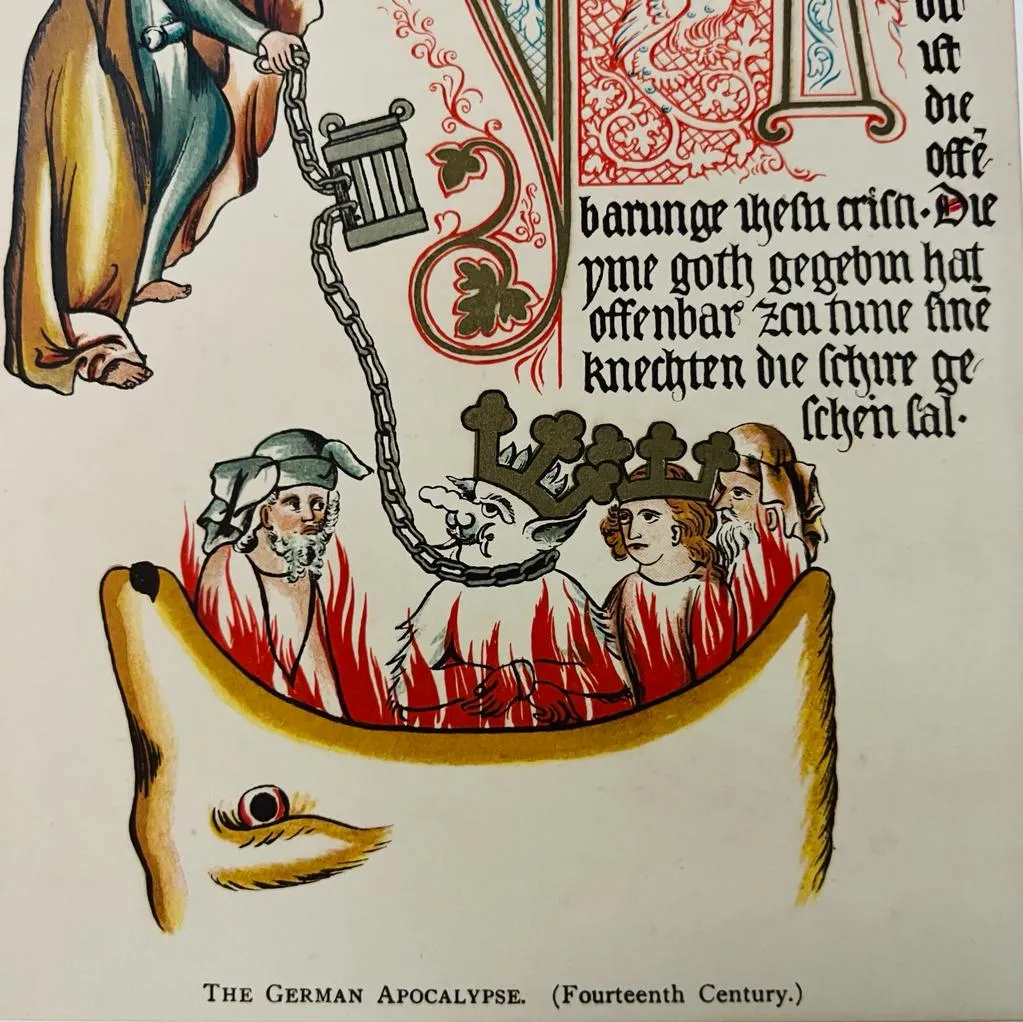 iſt
die
offē-
barunge iheſu criſti· Die
yme goth gegebin hat
offenbar zcu tune ſinē
knechten die ſchire ge-
ſchen ſal·
THE GERMAN APOCALYPSE. (Fourteenth Century.)